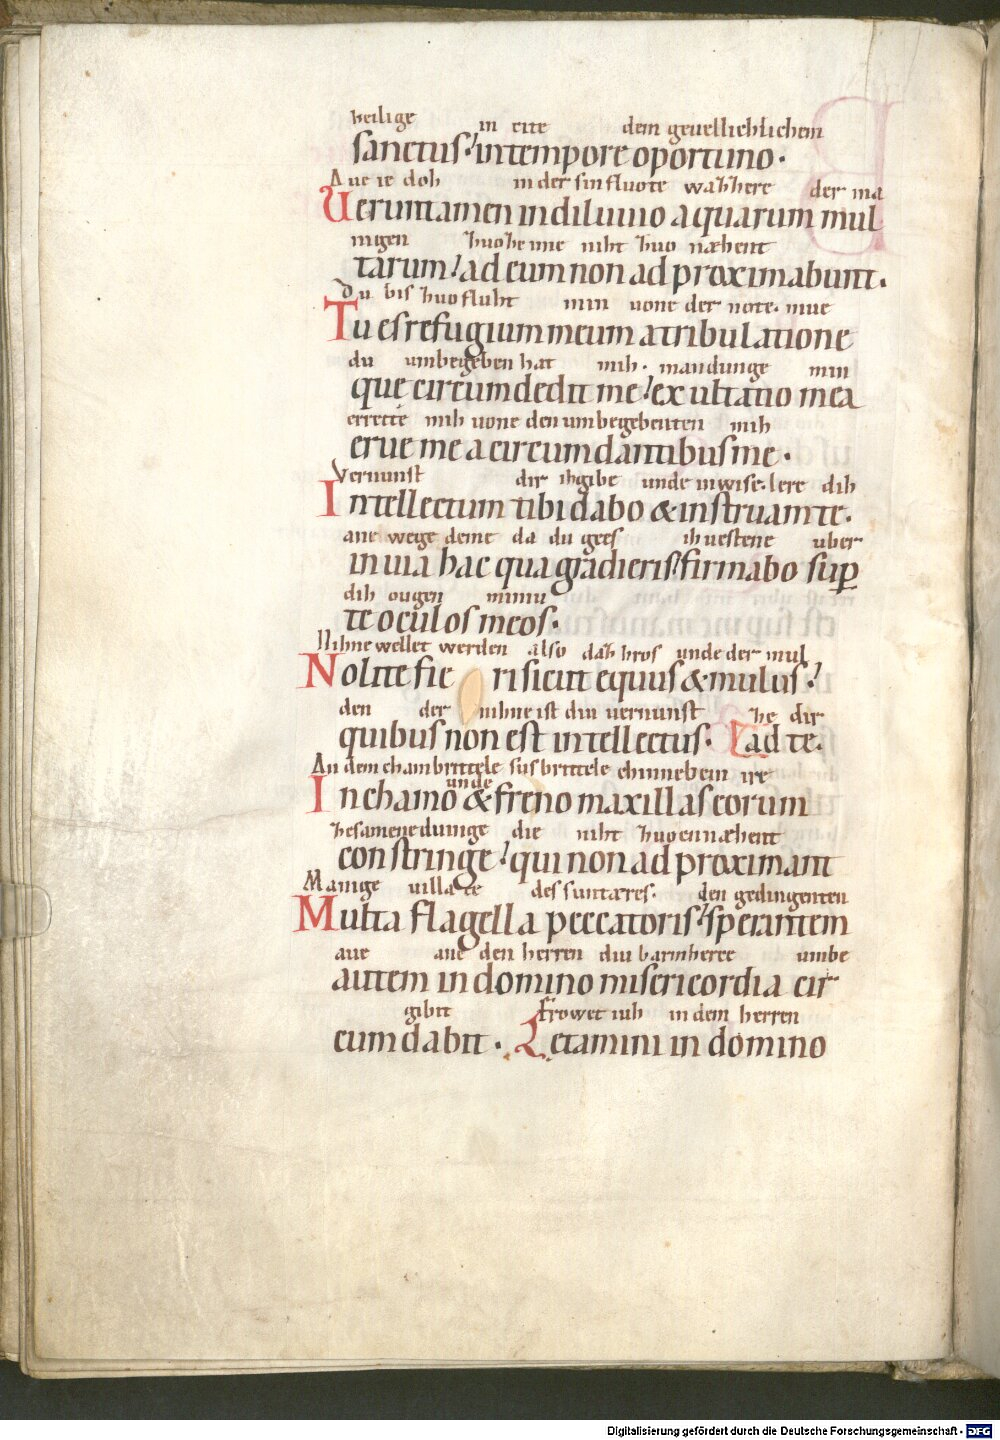 heilige in cite dem geuellichlichem
sanctus. in tempore oportuno.
Aue ie doh in der sinfluote wazzere der ma
Ueruntamen in diluuio aquarum mul
nigen zuo ze ime niht zuo næhent
tarum! ad eum non adproximabunt.
Du bis zuofluht min uone der note. mue
Tu es refugium meum a tribulatione
du umbegeben hat mih. mandunge min
quę circumdedit me! exultatio mea
errette mih uone den umbegebenten mih
erue me a circumdantibus me.
Vernunst dir ih gibe unde inwise. lere dih
Intellectum tibi dabo & instruam te.
ane wege deme da du gees ih uestene uber
in uia hac qua gradieris! firmabo sup
dih ougen miniu
te oculos meos.
Nihne wellet werden also daz hros unde der mul
Nolite fieri sicut equus & mulus!
den der nihne ist diu uernunst ze dir
quibus non est intellectus. ad te.
An dem chambrittele unde susbrittele chinnebein ire
In chamo & freno maxillas eorum
zesamene duinge die niht zuo ennæhent
constringe! qui non adproximant
Manige uilla te des suntæres. den gedingenten
Multa flagella peccatoris! sperantem
aue ane den herren diu barmherce umbe
autem in domino misericordia cir
gibit Frowet iuh in dem herren
cumdabit. Letamini in domino
Digitalisierung gefördert durch die Deutsche Forschungsgemeinschaft - DFG